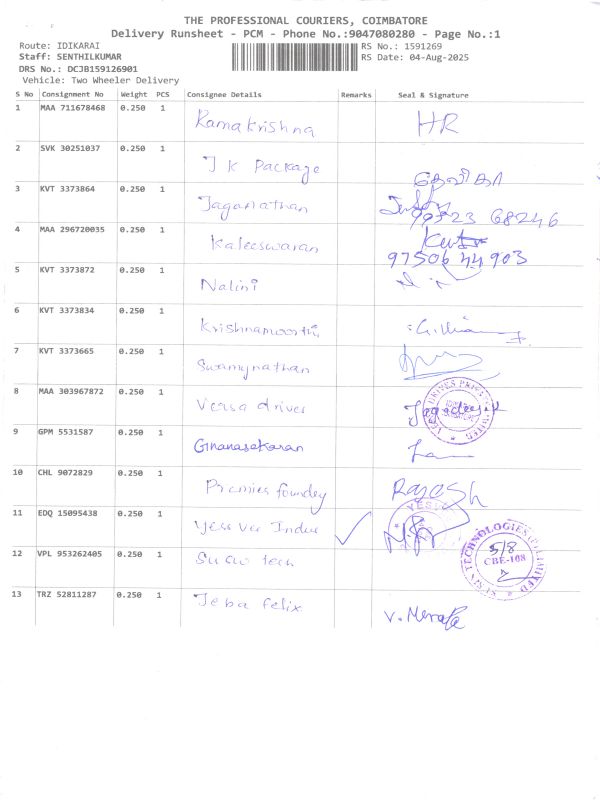 THE PROFESSIONAL COURIERS, COIMBATORE
Delivery Runsheet - PCM - Phone No.:9047080280 - Page No.:1
Route: IDIKARAI
RS No.: 1591269
Staff: SENTHILKUMAR
RS Date: 04-Aug-2025
DRS No.: DCJB159126901
Vehicle: Two Wheeler Delivery
S No Consignment No Weight PCS Consignee Details Remarks Seal & Signature
1 MAA 711678468 0.250 1 Ramakrishna HR
2 SVK 30251037 0.250 1 J K Package தெவிகா
3 KVT 3373864 0.250 1 Jaganathan 99523 68246
4 MAA 296720035 0.250 1 Kaleeswaran
97506 44903
5 KVT 3373872 0.250 1 Nalini
6 KVT 3373834 0.250 1 Krishnamoorthi
7 KVT 3373665 0.250 1 Swamynathan
8 MAA 303967872 0.250 1 Versa drives Jagadeesh
9 GPM 5531587 0.250 1 Gnanasekaran
10 CHL 9072829 0.250 1 Premier foundry Rajesh
11 EDQ 15095438 0.250 1 Yess Vee Indus
12 VPL 953262405 0.250 1 tech 5/8
CBE-108
13 TRZ 52811287 0.250 1 Jeba felix V.